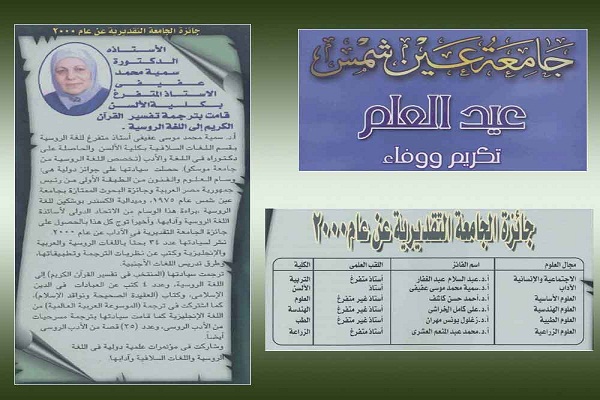 جائزة الجامعة التقديرية عن عام ٢٠٠٠
الأستاذه
الدكتورة
سمية محمد
عفيفى
الاستاذ المتفرغ
بكلية الألسن
قامت بترجمة تفسير القرآن
الكريم إلى اللغة الروسية .
أ.د. سمية محمد موسى عفيفى أستاذ متفرغ للغة الروسية
بقسم اللغات السلافية بكلية الألسن والحاصلة على
دكتوراه فى اللغة والأدب (تخصص اللغة الروسية من
جامعة موسكو) حصلت سيادتها على جوائز دولية هى:
وسام العلوم والفنون من الطبقة الأولى من رئيس
جمهورية مصر العربية وجائزة البحوث الممتازة بجامعة
عين شمس عام ١٩٧٥، وميدالية الكسندر بوشكين للغة
الروسية ببراءة هذا الوسام من الاتحاد الدولى لأساتذة
اللغة الروسية وآدابها. وأخيرا توج كل هذا بالحصول على
جائزة الجامعة التقديرية فى الآداب عن عام ٢٠٠٠.
نشر لسيادتها عدد ٣٤ بحثا باللغات الروسية والعربية
والإنجليزية وكتب عن نظريات الترجمة وتطبيقاتها،
وطرق تدريس اللغات الأجنبية.
ترجمت سيادتها (المنتخب فى تفسير القرآن الكريم) إلى
اللغة الروسية، وعدد ٤ كتب عن العبادات فى الدين
الإسلامى، وكتاب (العقيدة الصحيحة ونواقد الإسلام)،
كما اشتركت فى ترجمة (الموسوعة العربية العالمية) من
اللغة الإنجليزية كما قامت سيادتها بترجمة مسرحيات
من الأدب الروسى، وعدد (٢٥) قصة من الأدب الروسى
أيضاً.
وشاركت فى مؤتمرات علمية دولية فى اللغة
الروسية واللغات السلافية وآدابها.
جامعة عين شمس
عيد العلم
تكريم ووفاء
جائزة الجامعة التقديرية عن عام ٢٠٠٠
مجال العلوم اسم الفائز اللقب العلمى الكلية
الاجتماعية والانسانية أ.د. عبد السلام عبد الغفار أستاذ متفرغ التربية
الآداب أ.د. سمية محمد موسى عفيفى أستاذ متفرغ الألسن
العلوم الأساسية أ.د. أحمد حسن كاشف أستاذ غير متفرغ العلوم
العلوم الهندسية أ.د. على كامل الخراشى أستاذ غير متفرغ الهندسة
العلوم الطبية أ.د. زغلول يونس مهران أستاذ غير متفرغ الطب
العلوم الزراعية أ.د. محمد عبد المنعم العشرى أستاذ الزراعة